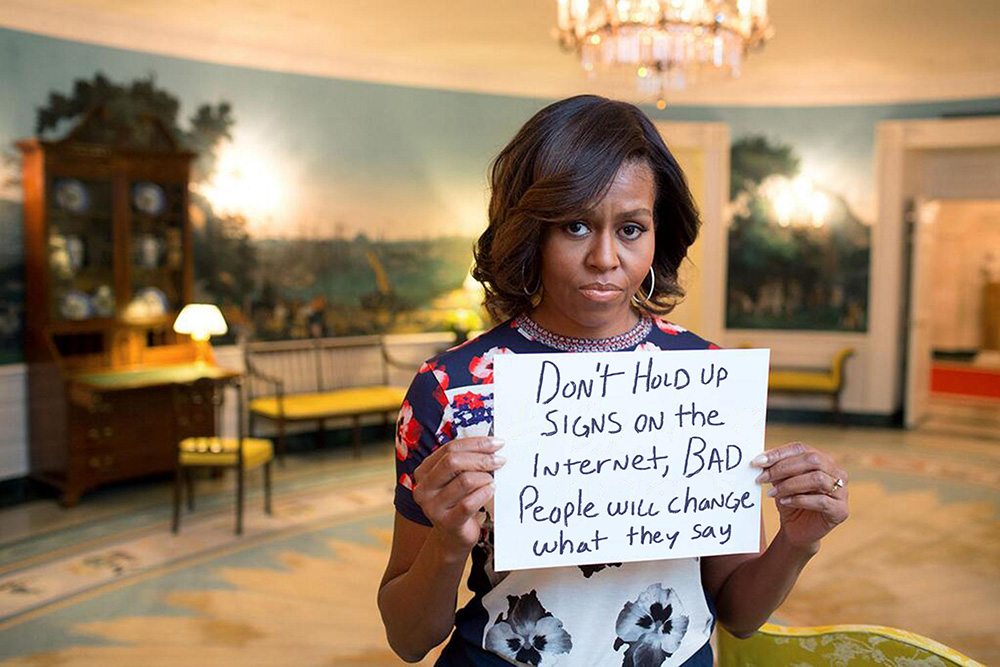 DON'T HOLD UP
SIGNS ON the
INterNet, BAD
People will change
what they say